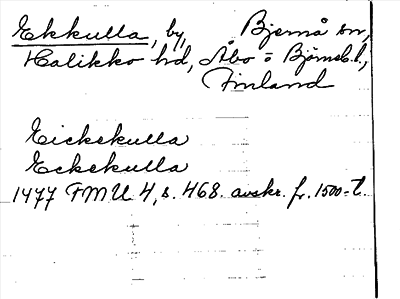 Ekkulla, by, Bjernå sn,
Halikko hd, Åbo o Björneb. l,
Finland
Eickekulla
Eckekulla
1477 FMU 4, s. 468. avskr. fr. 1500-t.